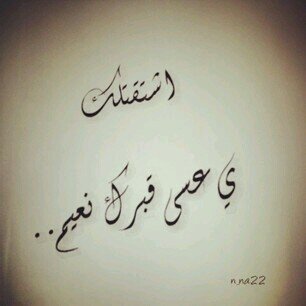 اشتقتلك
ي عسى قبرك نعيم..
n.na22